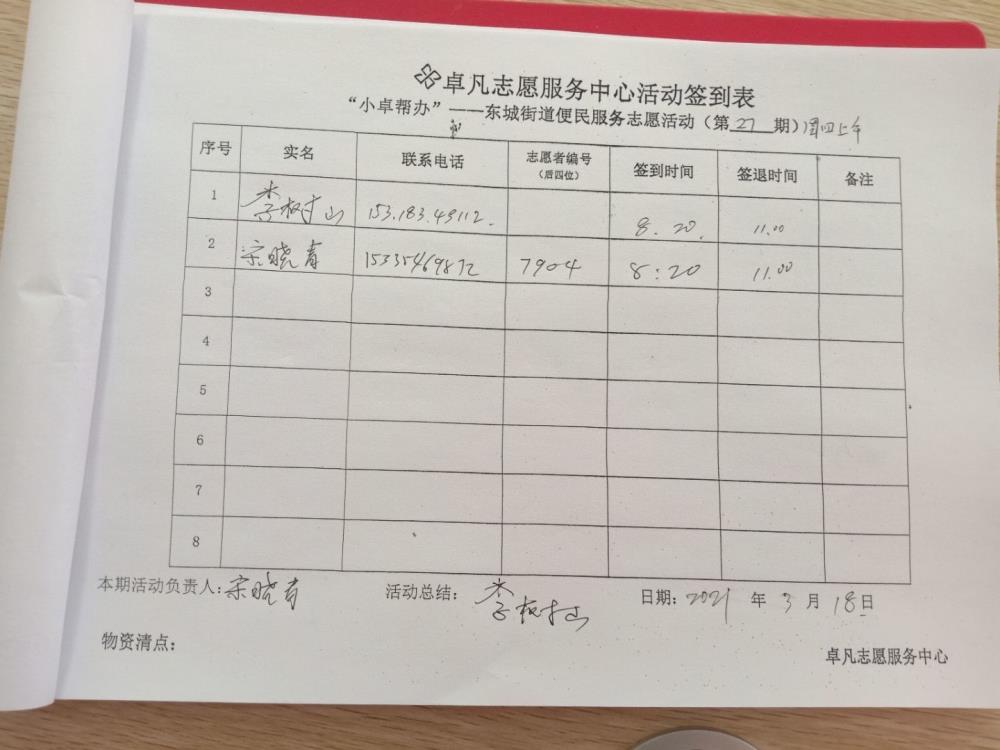 卓凡志愿服务中心活动签到表
“小卓帮办”——东城街道便民服务志愿活动（第27期）周四上午
序号 实名 联系电话 志愿者编号（后四位） 签到时间 签退时间 备注
1 李树山 153.183.49112. 8.20. 11.00
2 宋晓青 15335469872 7904 8:20 11.00
3
4
5
6
7
8
本期活动负责人:宋晓青 活动总结：李树山 日期:2021 年 3 月 18日
物资清点：
卓凡志愿服务中心